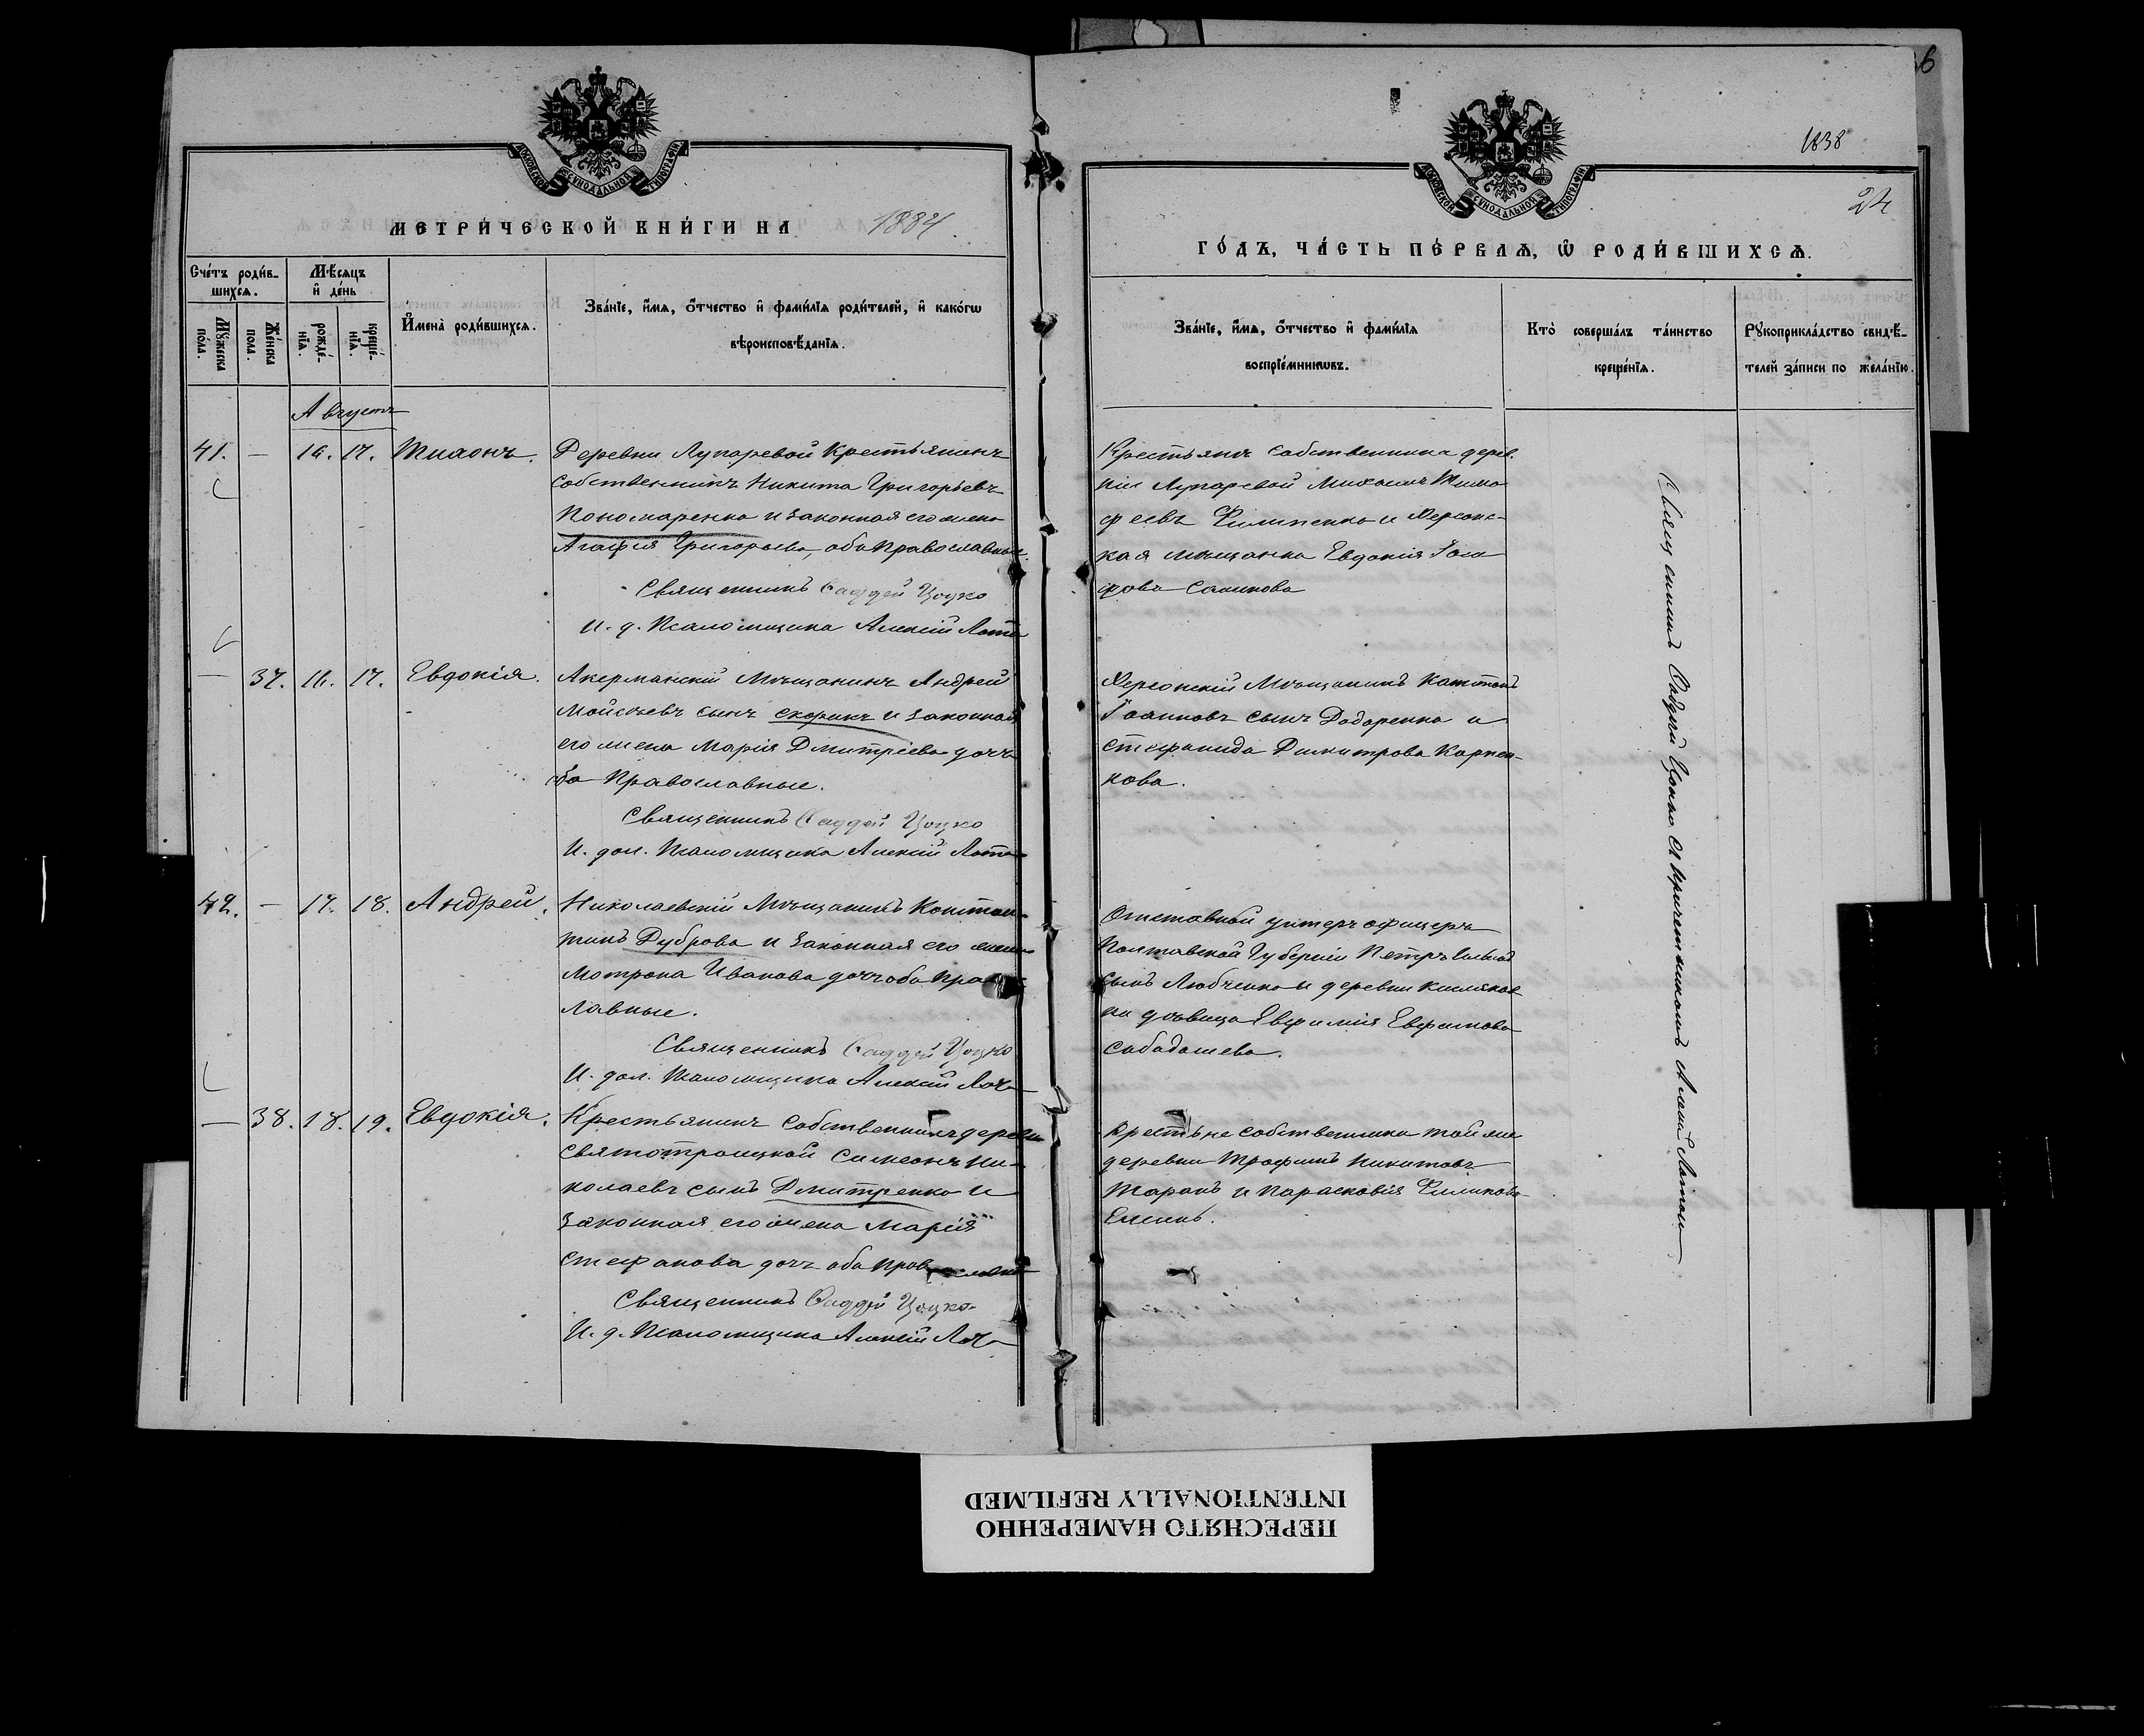 МОСКОВСКОЙ СУНОДАЛЬНОЙ ТИПОГРАФІИ
МЕТРИ́ЧЕСКОЙ КНИ́ГИ НА 1884.
Сче́тъ роди́в-
шихсѧ.
Мѣ́сяцъ
и҆ де́нь
Мꙋ́жеска
по́ла.
Же́нска
пола.
рожде́-
нїѧ.
креще́-
нїѧ.
И҆мена̀ роди́вшихсѧ.
Зва́нїе, и҆́мѧ, ѻ҆́тчество и҆ фами́лїѧ роди́телей, и҆ како́гѡ
вѣроисповѣ́данїѧ.
Августъ
41. — 16. 17. Тихонъ.
Деревни Лупаревой Крестьянинъ
собственникъ Никита Григорьевъ
Пономаренко и законная его жена
Агафія Григорьева, оба Православные.
Священникъ Фаддей Цоцко
И. д. Псаломщика Алексій
— 37. 16. 17. Евдокія.
Акерманскій Мѣщанинъ Андрей
Мойсѣевъ сынъ Скорикъ и законная
его жена Марія Дмитріева дочь
оба Православные.
Священникъ Фаддей Цоцко
И. дол. Псаломщика Алексій
42. — 17. 18. Андрей.
Николаевскій Мѣщанинъ Констан-
тинъ Дуброва и законная его жена
Мотрона Иванова дочь оба Прав
лавные.
Священникъ Фаддей Цоцко
И. дол. Псаломщика Алексій
— 38. 18. 19. Евдокія.
Крестьянинъ Собственникъ деревни
Святотроицкой Симеонъ Ни-
колаевъ сынъ Дмитренко и
законная его жена Марія
Стефанова дочь оба Православные
Священникъ Фаддей Цоцко
И. д. Псаломщика Алексій
6
1838
24
МОСКОВСКОЙ СУНОДАЛЬНОЙ ТИПОГРАФІИ
ГО́ДЪ, ЧА́СТЬ ПЕ́РВАѦ, Ѡ҆ РОДИ́ВШИХСѦ.
Зва́нїе, и҆́мѧ, ѻ҆́тчество и҆ фами́лїѧ
воспрїе́мникѡвъ.
Кто̀ соверша́лъ та́инство
креще́нїѧ.
Рꙋкоприкла́дство свидѣ́-
телей за́писи по жела́нїю.
Крестьяне собственники дерев.
ни Лупаревой Михаилъ Тимо
феевъ Филипенко и Херсонс-
кая мѣщанка Евдокія
Херсонскій Мѣщанинъ
Іоанновъ сынъ Додоренко и
Стефанида Димитрова Карпен-
кова.
Отставной унтеръ офицеръ
Полтавской Губерніи Петръ
сынъ Любченко и деревни
ки дѣвица Евфимія Евфимова
Сабадашева.
Крестьяне собственники той же
деревни Трофимъ Никитовъ
Таранъ и Парасковія Филипова
Священникъ Фаддей Цоцко съ причетникомъ Алексіемъ
ПЕРЕСНЯТО НАМЕРЕННО
INTENTIONALLY REFILMED